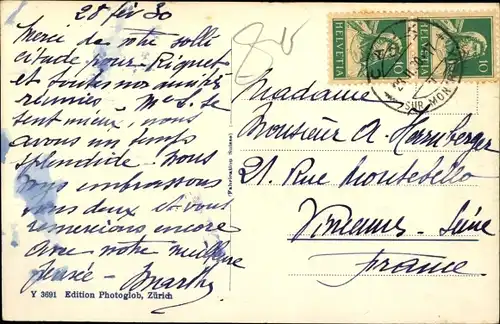 28 fév 30
Merci de votre solli
citude pour Riquet
et toutes nos amitiés
réunies - se
sent mieux, nous
avons un temps
splendide. Nous
vous embrassons
tous deux et vous
remercions encore
avec votre meilleure
pensée - Marthe
Y 3691 Edition Photoglob, Zürich
(Fabrication Suisse)
HELVETIA 10
10
SUR MON
Madame
Monsieur A.
21. Rue Montebello
Seine
France